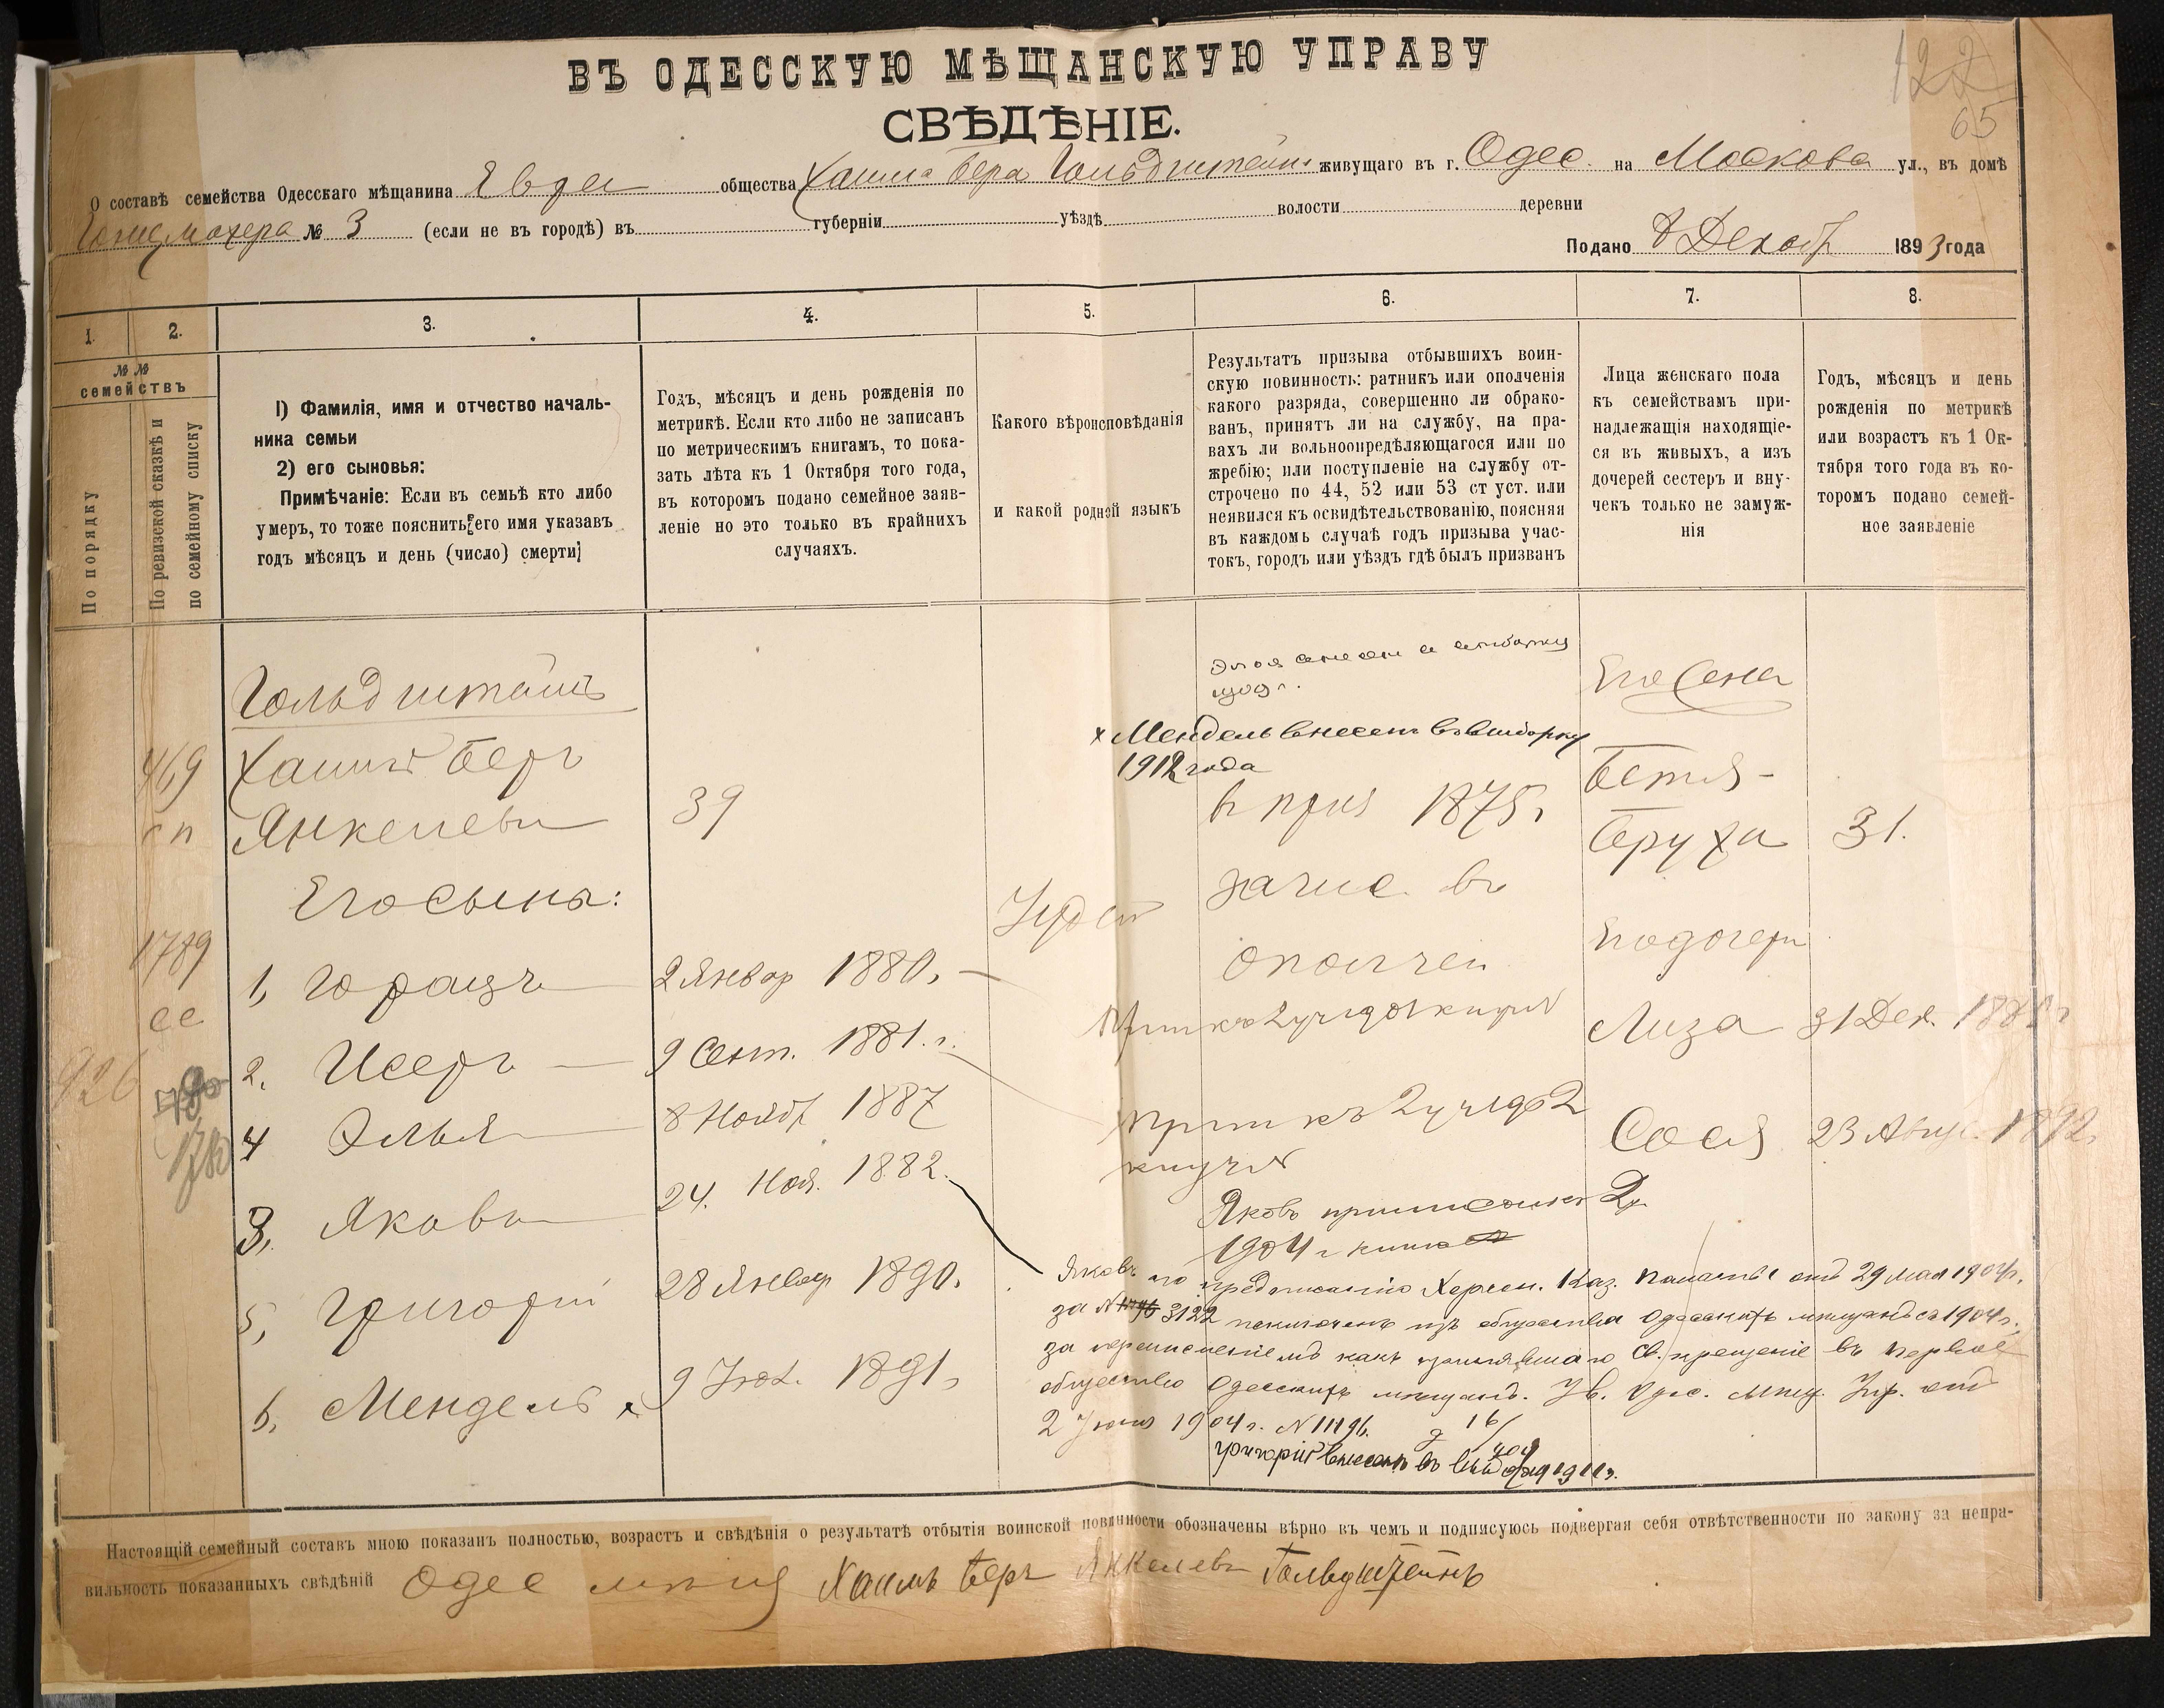 122
65
ВЪ ОДЕССКУЮ МѢЩАНСКУЮ УПРАВУ
СВѢДѢНІЕ.
О составѣ семейства Одесскаго мѣщанина общества Хаима Бера Гольдштейнъ живущаго въ г. Одес. на Москова ул., въ домѣ
№ 3 (если не въ городѣ) въ губерніи уѣздѣ волости деревни
Подано 8 Декабр 1893 года
1. 2. 3. 4. 5. 6. 7. 8.
№ №
семействъ
По порядку
По ревизской сказкѣ и
по семейному списку
1) Фамилія, имя и отчество началь-
ника семьи
2) его сыновья:
Примѣчаніе: Если въ семьѣ кто либо
умеръ, то тоже пояснить его имя указавъ
годъ мѣсяцъ и день (число) смерти;
Годъ, мѣсяцъ и день рожденія по
метрикѣ. Если кто либо не записанъ
по метрическимъ книгамъ, то пока-
зать лѣта къ 1 Октября того года,
въ которомъ подано семейное заяв-
леніе но это только въ крайнихъ
случаяхъ.
Какого вѣроисповѣданія
и какой родной языкъ
Результатъ призыва отбывшихъ воин-
скую повинность: ратникъ или ополченія
какого разряда, совершенно ли обрако-
ванъ, принятъ ли на службу, на пра-
вахъ ли вольноопредѣляющагося или по
жребію; или поступленіе на службу от-
строчено по 44, 52 или 53 ст уст. или
неявился къ освидѣтельствованію, поясняя
въ каждомъ случаѣ годъ призыва учас-
токъ, городъ или уѣздъ гдѣ былъ призванъ
Лица женскаго пола
къ семействамъ при-
надлежащія находящіе-
ся въ живыхъ, а изъ
дочерей сестеръ и вну-
чекъ только не замуж-
нія
Годъ, мѣсяцъ и день
рожденія по метрикѣ
или возрастъ къ 1 Ок-
тября того года въ ко-
торомъ подано семей-
ное заявленіе
Гольдштейнъ
1909г.
х Мендель внесенъ въ выборку
1912 года
469 Хаимъ Беръ
Янкелевъ 39 1875г
Бетя-
Беруха 31.
зачис. въ
ополчен
Его Сына:
Іудей
Его дочери
1789
1, Горацъ 2 Январ 1880,
Лиза 31 Дек.
2. Исеръ 9 Сент. 1881. г.
926
4 Элья 8 Нояб 1887
Сося 23 Авгус. 1892,
3, Яковъ 24. Ноя. 1882.
Яковъ приписанъ 2у
1904 г
5, Григорій 28 Январ 1890.
Яковъ по предписанію Херсон. Каз. Палаты отъ 29 Мая 1904г.
за № 3122 исключенъ изъ общества Одесскихъ мѣщанъ съ 1904г.,
за перечисленіемъ какъ принявшаго Св. крещеніе въ первое
общество Одесскихъ мѣщанъ. Ув. Одес. Мѣщ. Упр. отъ
2 Іюня 1904г. № 11196.
6, Мендель х 9 1891,
Григорій внесенъ въ выборку 1911г.
Настоящій семейный составъ мною показанъ полностью, возрастъ и свѣдѣнія о результатѣ отбытія воинской повинности обозначены вѣрно въ чемъ и подписуюсь подвергая себя отвѣтственности по закону за непра-
вильность показанныхъ свѣдѣній Одес Хаимъ Беръ Янкелевъ Гольдштейнъ